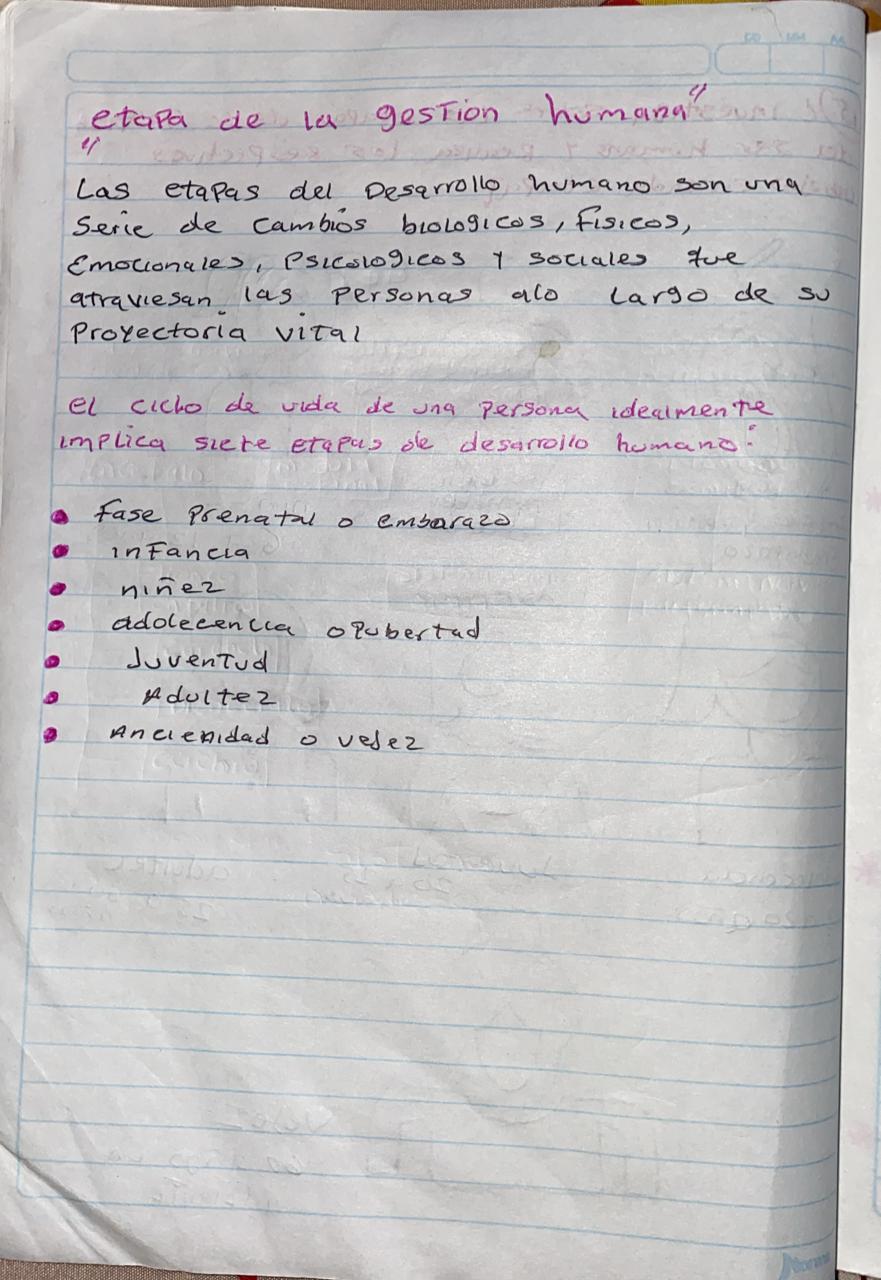 "etapa de la gestion humana"
Las etapas del Desarrollo humano son una
Serie de cambios biologicos, Fisicos,
Emocionales, Psicologicos y sociales que
atraviesan las personas alo Largo de su
Proyectoria vital
el ciclo de vida de una persona idealmente
implica siete etapas de desarrollo humano:
• Fase Prenatal o embarazo
• inFancia
• niñez
• adolecencia o Pubertad
• Juventud
• Adultez
• Ancienidad o vejez
DD MM AA
Norma